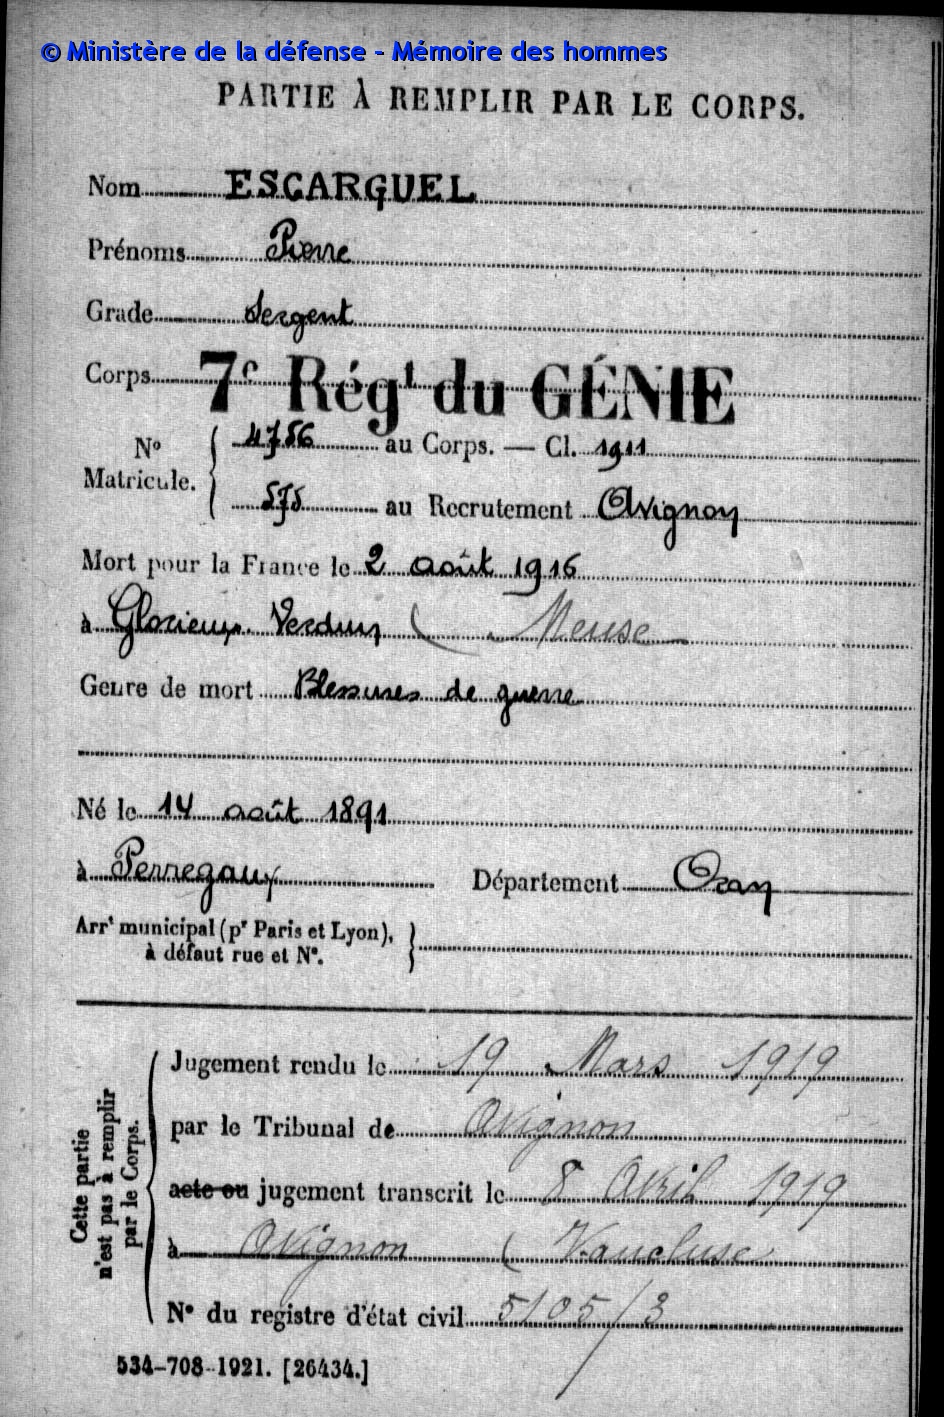 © Ministère de la défense - Mémoire des hommes
PARTIE À REMPLIR PAR LE CORPS.
Nom ESCARGUEL
Prénoms Pierre
Grade Sergent
Corps 7e Régt du GÉNIE
No Matricule. { 4756 au Corps. — Cl. 1911
575 au Recrutement Avignon
Mort pour la France le 2 août 1916
à Glorieux Verdun ( Meuse
Genre de mort Blessures de guerre
Né le 14 août 1891
à Perregaux Département Oran
Arrt municipal (pr Paris et Lyon),
à défaut rue et No. }
Cette partie
n'est pas à remplir
par le Corps.
Jugement rendu le 19 Mars 1919
par le Tribunal de Avignon
acte ou jugement transcrit le 8 Avril 1919
à Avignon ( Vaucluse
No du registre d'état civil 5105/3
534-708-1921. [26434.]